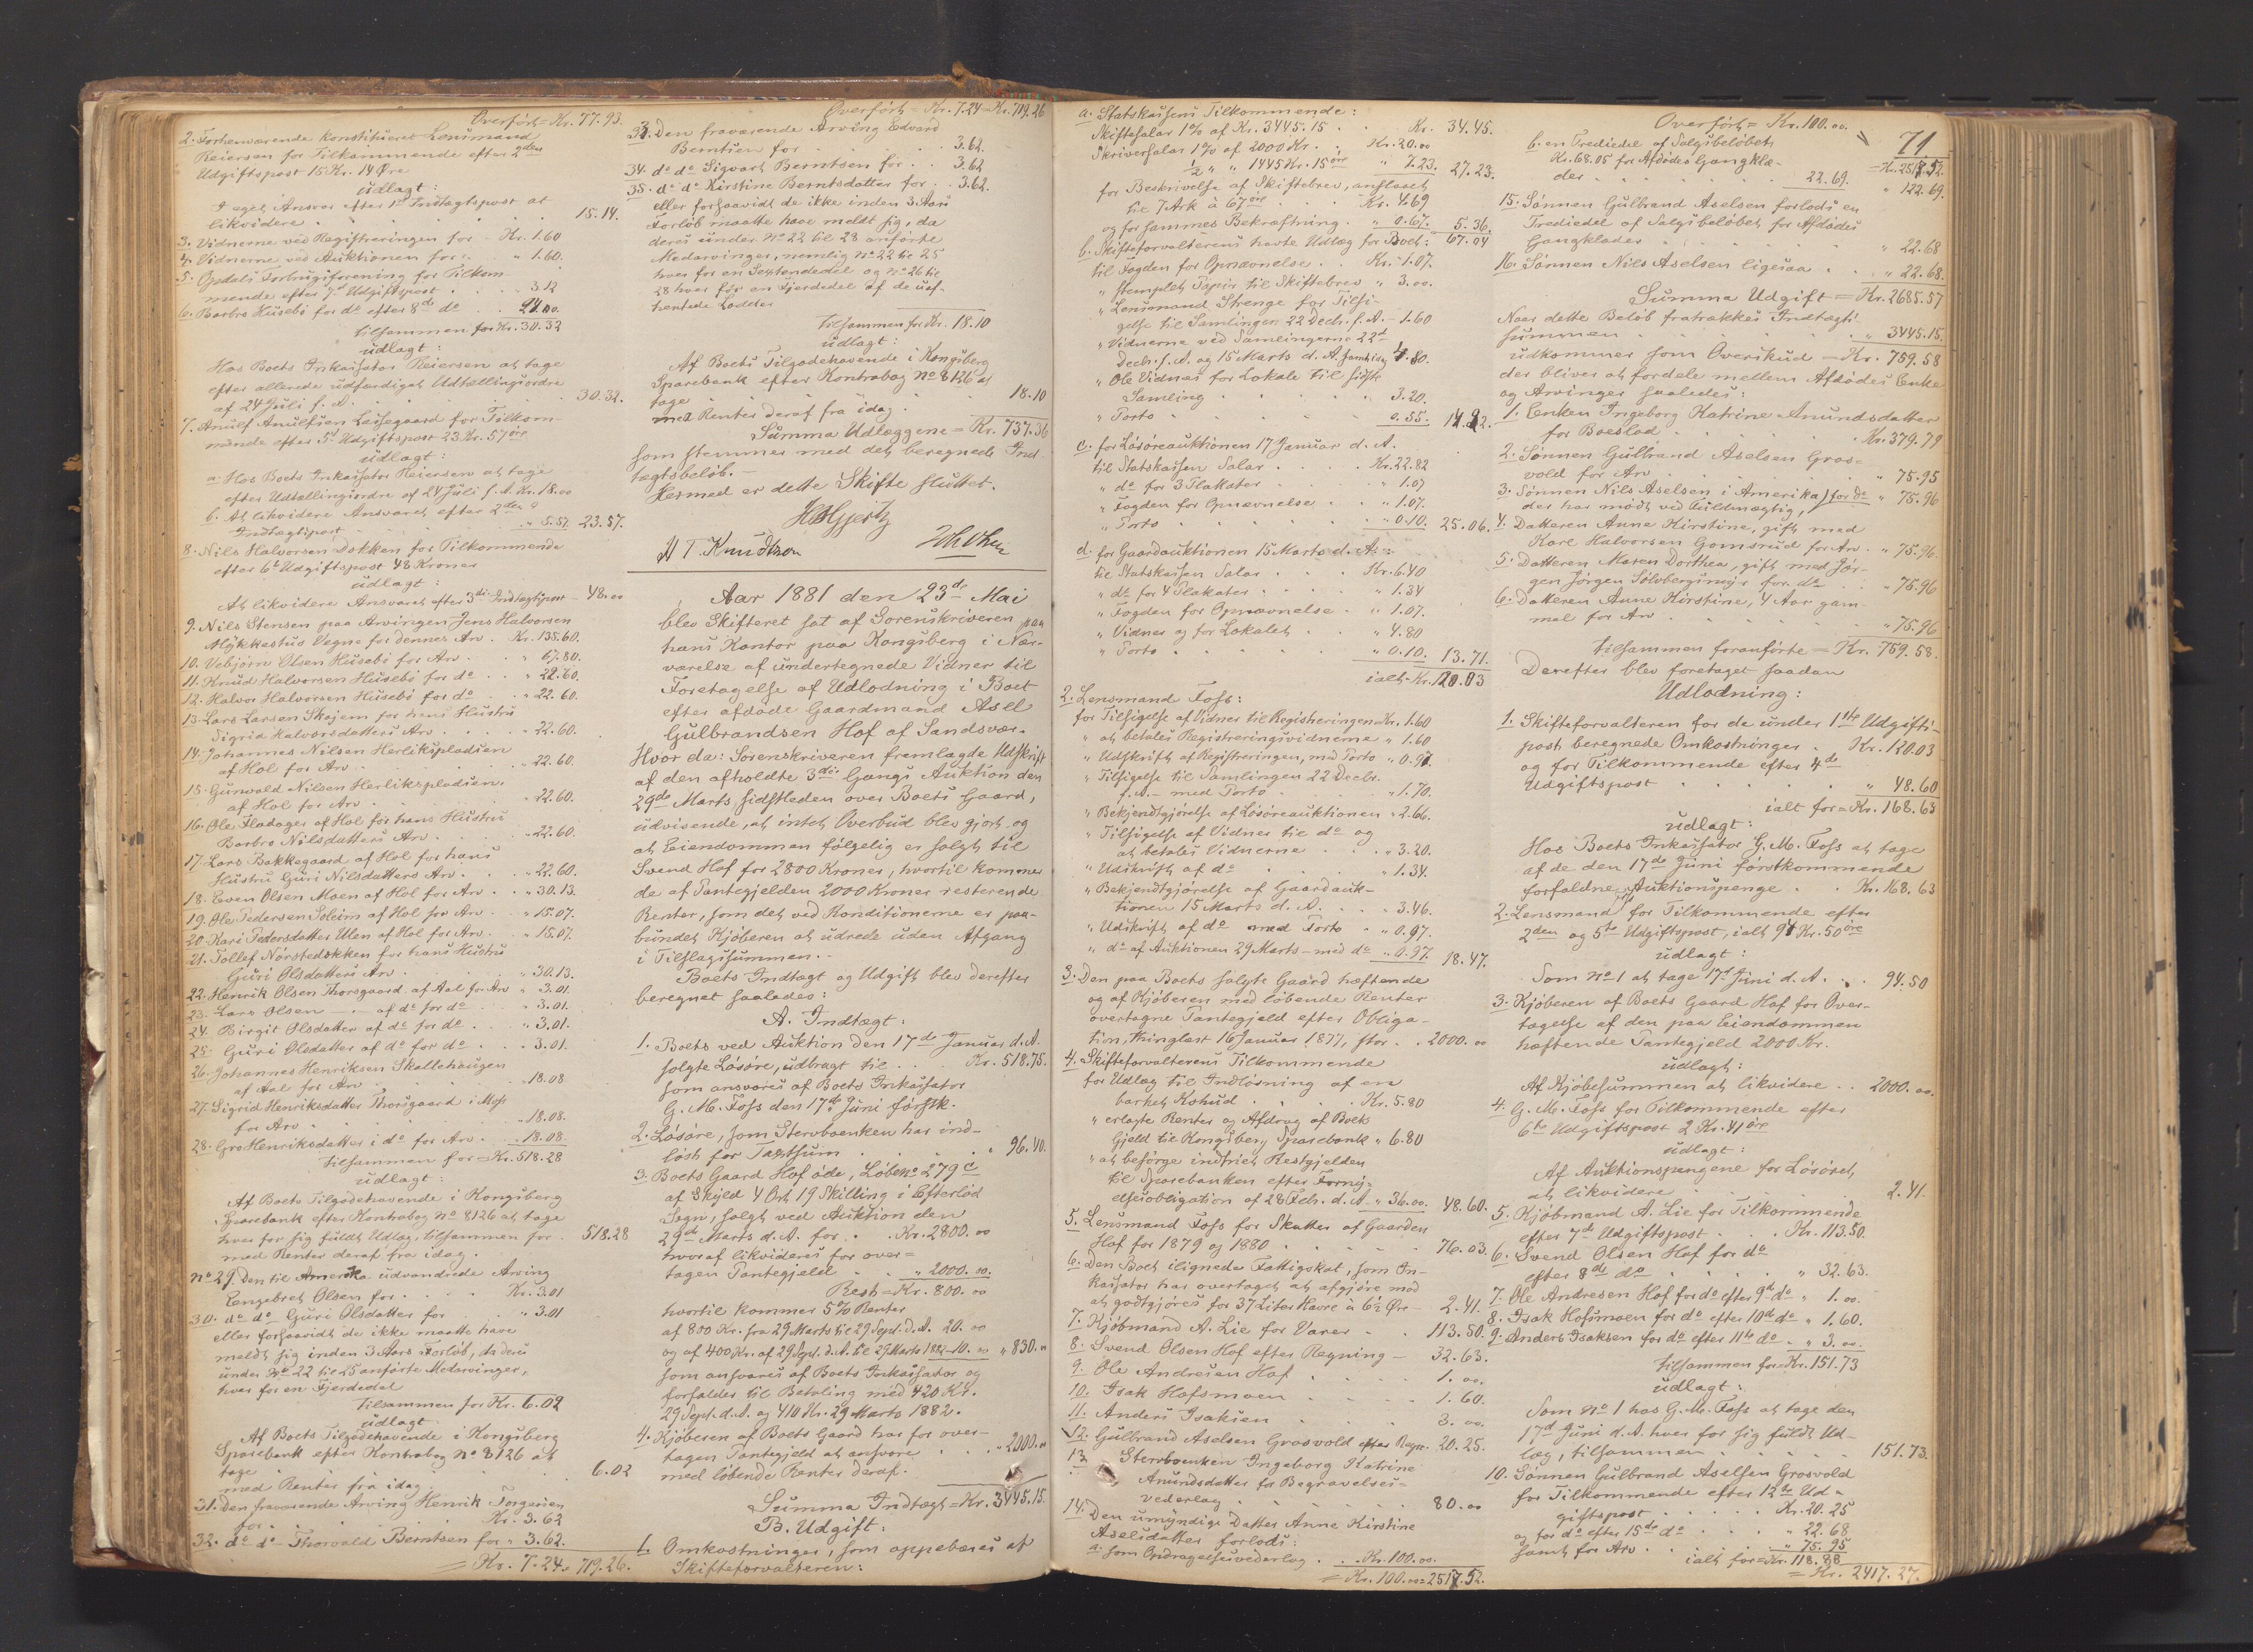 Overført = Kr. 77.93.
2. Forhenværende konstitueret Lensmand
Reiersen for Tilkommende efter 2den
Udgiftspost 15 Kr. 14 Øre
udlagt:
I eget Ansvar efter 1ste Indtægtspost at
likvidere . . . 15.14.
3. Vidnerne ved Registreringen for – Kr. 1.60
4. Vidnerne ved Auktionen for . . " 1.60.
5. Opdals Forbrugsforening for Tilkom-
mende efter 7d Udgiftspost . . . 3.12
6. Barbro Husebö for do efter 8de do . . 24.00.
tilsammen for Kr. 30.32
udlagt:
Hos Boets Inkassator Reiersen at tage
efter allerede udfærdiget Udtællingsordre
af 24 Juli f. A. . . . 30.32.
7. Anulf Anulfsen Lassegaard for Tilkom-
mende efter 5t Udgiftspost 23 Kr. 57 øre
udlagt:
a. Hos Boets Inkassator Reiersen at tage
efter Udtællingsordre af 24 Juli f. A. Kr. 18.00
b. At likvidere Ansvaret efter 2den
Indtægtspost . . . " 5.57. 23.57.
8. Nils Halvorsen Dokken for Tilkommende
efter 6t Udgiftspost 48 Kroner
udlagt:
At likvidere Ansvaret efter 3die Indtægtspost – 48.00
9. Nils Stensen paa Arvingen Jens Halvorsen
Mykkestus Vegne for dennes Arv . Kr. 135.60.
10. Vebjörn Olsen Husebö for Arv . . " 67.80.
11. Knud Halvorsen Husebö for do . . " 22.60.
12. Halvor Halvorsen Husebö for do . . " 22.60.
13. Lars Larsen Skajem for hans Hustru
Sigrid Halvorsdatters Arv . . . " 22.60.
14. Johannes Nilsen Herlikspladsen
af Hol for Arv . . . " 22.60.
15. Gunvald Nilsen Herlikspladsen
af Hol for Arv . . . " 22.60.
16. Ole Fladager af Hol for hans Hustru
Barbro Nilsdatters Arv . . . " 22.60.
17. Lars Bakkegaard af Hol for hans
Hustru Guri Nilsdatters Arv . . " 22.60.
18. Even Olsen Moen af Hol for Arv . . " 30.13.
19. Ole Pedersen Soleim af Hol for Arv . " 15.07.
20. Kari Pedersdatter Ulen af Hol for Arv . " 15.07.
21. Tollef Nørstedokken for hans Hustru
Guri Olsdatters Arv . . . " 30.13.
22. Henrik Olsen Thorsgaard af Aal for Arv " 3.01.
23. Lars Olsen – . af do for do . . " 3.01.
24. Birgit Olsdatter af do for do . . " 3.01.
25. Guri Olsdatter af do for do . . " 3.01.
26. Johannes Henriksen Skallehaugen
af Aal for Arv . . . " 18.08
27. Sigrid Henriksdatter Thorsgaard i Moss
for Arv . . . " 18.08.
28. Gro Henriksdatter i do for Arv . " 18.08
tilsammen for = Kr. 518.28
udlagt:
Af Boets Tilgodehavende i Kongsberg
Sparebank efter Kontrabog No 8126 at tage
hver for sig fuldt Udlæg, tilsammen for . 518.28
med Renter deraf fra idag.
No 29. Den til Amerika udvandrede Arving
Engebret Olsen for . . . Kr. 3.01
30. do do Guri Olsdatter for . . " 3.01
eller forsaavidt de ikke maatte have
meldt sig inden 3 Aars Forløb, da deres
under No 22 til 25 anførte Medarvinger,
hver for en Fjerdedel
tilsammen for Kr. 6.02
udlagt
Af Boets Tilgodehavende i Kongsberg
Sparebank efter Kontrabog No 8126 at
tage . . . 6.02
med Renter fra idag.
31. Den fraværende Arving Henrik Torgersen
for . . . Kr. 3.62
32. do do Thorvald Berntsen for " 3.62.
= Kr. 7.24 = 719.26.
Overført = Kr. 7.24 = Kr. 719.26
33. Den fraværende Arving Edvard
Berntsen for . . . 3.62.
34. do do Sigvart Berntsen for . . 3.62
35. do do Kirstine Berntsdatter for . . 3.62.
eller forsaavidt de ikke inden 3 Aars
Forløb maatte have meldt sig, da
deres under No 22 til 28 anførte
Medarvinger, nemlig No 22 til 25
hver for en Sextendedel og No 26 til
28 hver for en Fjerdedel af de uaf-
hentede Lodder
tilsammen for Kr. 18.10
udlagt:
Af Boets Tilgodehavende i Kongsberg
Sparebank efter Kontrabog No 8126 at
tage . . . 18.10
med Renter deraf fra idag.
Summa Udlæggene = Kr. 737.36
som stemmer med det beregnede Ind-
tægtsbeløb. –
Hermed er dette Skifte sluttet.
H T Knudtzon
Aar 1881 den 23d Mai
blev Skifteret sat af Sorenskriveren paa
hans Kontor paa Kongsberg i Nær-
værelse af undertegnede Vidner til
Foretagelse af Udlodning i Boet
efter afdøde Gaardmand Asle
Gulbrandsen Hof af Sandsvær.
Hvor da: Sorenskriveren fremlagde Udskrift
af den afholdte 3die Gangs Auktion den
29de Marts sidstleden over Boets Gaard,
udvisende, at intet Overbud blev gjort og
at Eiendommen følgelig er solgt til
Svend Hof for 2800 Kroner, hvortil kommer
de af Pantegjelden 2000 Kroner resterende
Renter, som det ved Konditionerne er paa-
bundet Kjøberen at udrede uden Afgang
i Tilslagssummen. –
Boets Indtægt og Udgift blev derefter
beregnet saaledes:
A. Indtægt:
1. Boets ved Auktion den 17d Januar d. A.
solgte Løsøre, udbragt til . . Kr. 518.75.
som ansvares af Boets Inkassator
G. M. Foss den 17de Juni førstk.
2. Løsøre, som Stervboenken har ind-
løst for Taxtsum . . . " 96.40.
3. Boets Gaard Hof øde, Løbeno 279c
af Skyld 4 Ort 19 Skilling i Efterlød
Sogn, solgt ved Auktion den
29d Marts d. A. for . . Kr. 2800.00
hvoraf likvideres for over=
tagen Pantegjeld . . " 2000.00.
Rest = Kr. 800.00
hvortil kommer 5 % Renter
af 800 Kr. fra 29 Marts til 29 Sept. d. A. 20.00
og af 400 Kr. af 29 Sept. d. A. til 29 Marts 1882 – 10.00 " 830.00
som ansvares af Boets Inkassator og
forfalder til Betaling med 420 Kr.
29 Sept. d. A. og 410 Kr. 29 Marts 1882.
4. Kjøberen af Boets Gaard har for over-
tagen Pantegjeld at ansvare . . " 2000.00
med løbende Renter deraf.
Summa Indtægt = Kr. 3445.15.
B. Udgift:
1. Omkostninger, som oppebæres af
Skifteforvalteren:
a. Statskassens Tilkommende:
Skiftesalær 1 % af Kr. 3445.15 . . Kr. 34.45.
Skriversalær 1 % af 2000 Kr. . Kr. 20.00
1/2 " " 1445 Kr. 15 øre " 7.23. 27.23.
for Beskrivelse af Skiftebrev, anslaaet
til 7 Ark à 67 øre . . . Kr. 4.69
og for sammes Bekræftning . . " 0.67. 5.36.
67.04
b. Skifteforvalterens havte Udlæg for Boet:
til Fogden for Opnævnelse . . Kr. 1.07.
" stemplet Papir til Skiftebrev " 3.00.
" Lensmand Strenge for Tilsi-
gelse til Samlingen 22 Decb. f. A. – 1.60
" Vidnerne ved Samlingerne 22d
Decb. f. A. og 15 Marts d. A. 4.80.
" Ole Vidnes for Lokale til sidste
Samling . . . " 3.20.
" Porto . . . 0.55. 14.22.
c. for Løsøreauktionen 17 Januar d. A.
til Statskassen Salær . . . Kr. 22.82
" do for 3 Plakater . . . " 1.07
" Fogden for Opnævnelse . . " 1.07.
" Porto . . . " 0.10. 25.06.
d. for Gaardauktionen 15 Marts d. A.:
til Statskassen Salær . . . Kr. 6.40
" do for 4 Plakater . . . " 1.34
" Fogden for Opnævnelse . . " 1.07.
" Vidner og for Lokalet . . " 4.80
" Porto . . . " 0.10. 13.71.
ialt = Kr. 120.03
2. Lensmand Foss:
for Tilsigelse af Vidner til Registreringen Kr. 1.60
" at betales Registreringsvidnerne " 1.60
" Udskrift af Registreringen, med Porto " 0.97.
" Tilsigelse til Samlingen 22 Decbr.
f. A. – med Porto . . . " 1.70.
" Bekjendtgjørelse af Løsøreauktionen " 2.66.
" Tilsigelse af Vidner til do og
at betales Vidnerne . . . " 3.20.
" Udskrift af do . . . " 1.34.
" Bekjendtgjørelse af Gaardauk-
tionen 15 Marts d. A. . . . " 3.46.
" Udskrift af do med Porto . " 0.97.
" do af Auktionen 29 Marts – med do " 0.97. 18.47.
3. Den paa Boets solgte Gaard hæftende
og af Kjøberen med løbende Renter
overtagne Pantegjeld efter Obliga-
tion, thinglæst 16 Januar 1877, stor . . 2000.00
4. Skifteforvalterens Tilkommende
for Udlæg til Indløsning af en
barket Kohud . . . Kr. 5.80
" erlagte Renter og Afdrag af Boets
Gjeld til Kongsberg Sparebank " 6.80
" at besørge indfriet Restgjelden
til Sparebanken efter Forny-
elsesobligation af 28 Feb. d. A. " 36.00. 48.60.
5. Lensmand Foss for Skatter af Gaarden
Hof for 1879 og 1880 . . . 76.03.
6. Den Boet ilignede Fattigskat, som In-
kassator har overtaget at afgjøre mod
at godtgjøres for 37 Liter Havre à 6½ Øre – 2.41.
7. Kjøbmand A. Lie for Varer . . 113.50.
8. Svend Olsen Hof efter Regning – 32.63.
9. Ole Andresen Hof . . . 1.00.
10. Isak Hofsmoen . . . 1.60.
11. Anders Isaksen . . . 3.00.
12. Gulbrand Aselsen Grosvold efter Regn. 20.25.
13. Stervboenken Ingeborg Katrine
Anundsdatter for Begravelses-
vederlag . . . 80.00
14. Den umyndige Datter Anne Kirstine
Aselsdatter forlods:
a. som Opdragelsesvederlag . . Kr. 100.00.
= Kr. 100.00 = 2517.52.
71
Overført = Kr. 100.00. = Kr. 2517.52.
b. en Trediedel af Salgsbeløbet
Kr. 68.05 for Afdødes Gangklæ-
der . . . 22.69. " 122.69.
15. Sønnen Gulbrand Aselsen forlods en
Trediedel af Salgsbeløbet for Afdødes
Gangklæder . . . " 22.68
16. Sønnen Nils Aselsen ligesaa . . " 22.68.
Summa Udgift = Kr. 2685.57
Naar dette Beløb fratrækkes Indtægts-
summen . . . " 3445.15.
udkommer som Overskud = Kr. 759.58
der bliver at fordele mellem Afdødes Enke
og Arvinger saaledes:
1. Enken Ingeborg Katrine Anundsdatter
for Boeslod . . . Kr. 379.79
2. Sønnen Gulbrand Aselsen Gros-
vold for Arv . . . " 75.95
3. Sønnen Nils Aselsen i Amerika, for do " 75.96
der har mødt ved Fuldmægtig,
4. Datteren Anne Kirstine, gift med
Kare Halvorsen Gomsrud for Arv . " 75.96.
5. Datteren Maren Dorthea, gift med Jør-
gen Jørgen Sølvbergsmyr for do " 75.96
6. Datteren Anne Kirstine, 4 Aar gam-
mel for Arv . . . " 75.96
tilsammen foranførte = Kr. 759.58.
Derefter blev foretaget saadan
Udlodning:
1. Skifteforvalteren for de under 1ste Udgifts-
post beregnede Omkostninger . Kr. 120.03
og for Tilkommende efter 4de
Udgiftspost . . . " 48.60
ialt for = Kr. 168.63
udlagt:
Hos Boets Inkassator G. M. Foss at tage
af de den 17de Juni førstkommende
forfaldne Auktionspenge . . Kr. 168.63
2. Lensmand for Tilkommende efter
2den og 5te Udgiftspost, ialt 94 Kr. 50 øre
udlagt:
Som No 1 at tage 17d Juni d. A. . . 94.50
3. Kjøberen af Boets Gaard Hof for Over-
tagelse af den paa Eiendommen
hæftende Pantegjeld 2000 Kr.
udlagt:
Af Kjøbesummen at likvidere . . 2000.00.
4. G. M. Foss for Tilkommende efter
6te Udgiftspost 2 Kr. 41 øre
udlagt:
Af Auktionspengene for Løsøret
at likvidere . . . 2.41.
5. Kjøbmand A. Lie for Tilkommende
efter 7de Udgiftspost . . Kr. 113.50.
6. Svend Olsen Hof for do
efter 8de do . . . " 32.63.
7. Ole Andresen Hof for do efter 9d do " 1.00.
8. Isak Hofsmoen for do efter 10d do " 1.60.
9. Anders Isaksen for do efter 11te do . " 3.00.
tilsammen for = Kr. 151.73
udlagt:
Som No 1 hos G. M. Foss at tage den
17d Juni d. A. hver for sig fuldt Ud-
læg, tilsammen . . . 151.73.
10. Sønnen Gulbrand Aselsen Grosvold
for Tilkommende efter 12te Ud-
giftspost . . . Kr. 20.25
og for do efter 15de do . . " 22.68
samt for Arv . . . " 75.95
ialt for = Kr. 118.88
= Kr. 2417.27.